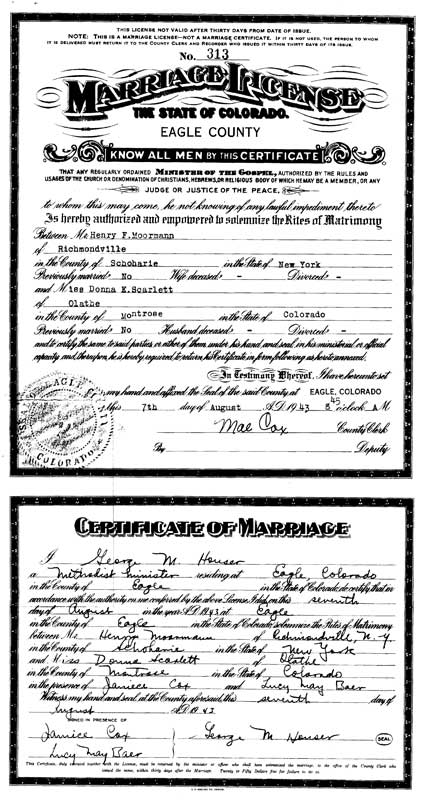 THIS LICENSE NOT VALID AFTER THIRTY DAYS FROM DATE OF ISSUE.
NOTE: THIS IS A MARRIAGE LICENSE—NOT A MARRIAGE CERTIFICATE. IF IT IS NOT USED, THE PERSON TO WHOM
IT IS DELIVERED MUST RETURN IT TO THE COUNTY CLERK AND RECORDER WHO ISSUED IT WITHIN THIRTY DAYS OF ITS ISSUE.
No. 313
MARRIAGE LICENSE
THE STATE OF COLORADO.
EAGLE COUNTY
KNOW ALL MEN BY THIS CERTIFICATE
THAT ANY REGULARLY ORDAINED MINISTER OF THE GOSPEL, AUTHORIZED BY THE RULES AND
USAGES OF THE CHURCH OR DENOMINATION OF CHRISTIANS, HEBREWS, OR RELIGIOUS BODY OF WHICH HE MAY BE A MEMBER, OR ANY
JUDGE OR JUSTICE OF THE PEACE,
to whom this may come, he not knowing of any lawful impediment thereto
Is hereby authorized and empowered to solemnize the Rites of Matrimony
Between Mr. Henry F. Moormann
of Richmondville
in the County of Schoharie in the State of New York
Previously married No Wife deceased - Divorced -
and Miss Donna E. Scarlett
of Olathe
in the County of Montrose in the State of Colorado
Previously married No Husband deceased - Divorced -
and to certify the same to said parties, or either of them, under his hand and seal, in his ministerial or official
capacity and thereupon, he is hereby required to return, his Certificate in form following as hereto annexed.
In Testimony Whereof, I have hereunto set
my hand and affixed the Seal of the said County at EAGLE, COLORADO
this 7th day of August A.D. 1943 8 45 o'clock A M
Mae Cox County Clerk
By Deputy
EAGLE
COLORADO
CERTIFICATE OF MARRIAGE
I George M. Houser
a Methodist minister residing at Eagle, Colorado
in the County of Eagle in the State of Colorado, do certify that in
accordance with the authority on me conferred by the above License, I did, on this seventh
day of August in the year A.D. 1943, at Eagle
in the County of Eagle in the State of Colorado solemnize the Rites of Matrimony
between Mr. Henry Moormann of Richmondville, N-Y.
in the County of Schoharie in the State of New York
and Miss Donna Scarlett of Olathe
in the County of Montrose in the State of Colorado
in the presence of Janiece Cox and Lucy May Baer
Witness my hand and seal, at the County aforesaid, this seventh day of
August A.D. 1943
SIGNED IN PRESENCE OF
Janiece Cox
Lucy May Baer
George M Houser
SEAL
This Certificate, duly executed together with the License, must be returned by the minister or officer who shall have solemnized the marriage, to the office of the County Clerk who
issued the same, within thirty days after the Marriage. Twenty to Fifty Dollars fine for failure to do so.